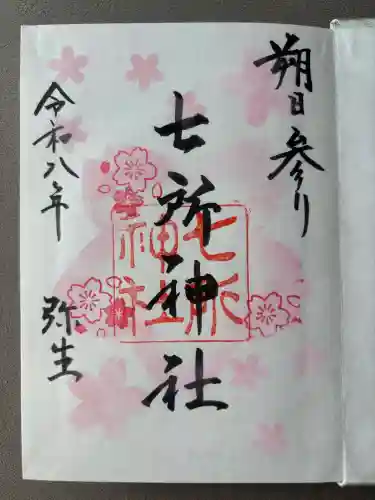 朔日参り
七所神社
七所神社
令和八年 弥生